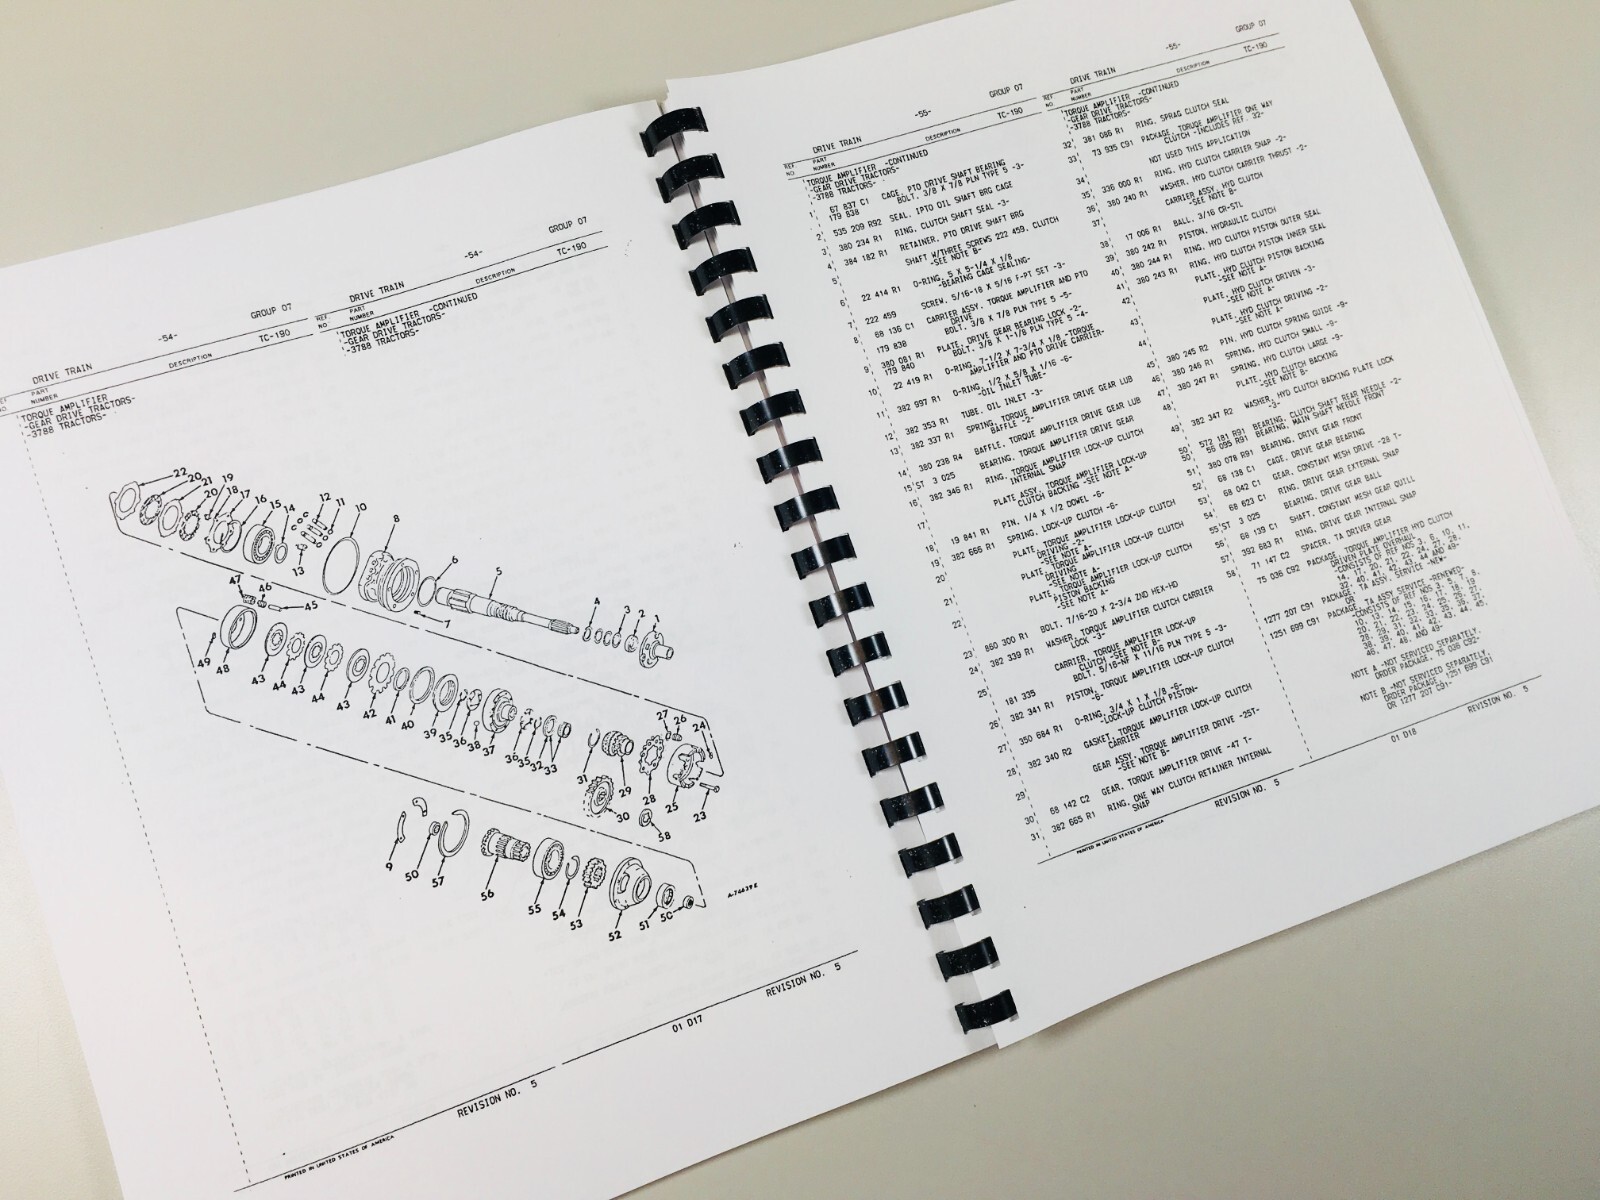 -54- GROUP 07
DRIVE TRAIN TC-190
PART
NUMBER DESCRIPTION
TORQUE AMPLIFIER
-GEAR DRIVE TRACTORS-
-3788 TRACTORS-
-54- GROUP 07
DRIVE TRAIN TC-190
REF PART
NO NUMBER DESCRIPTION
TORQUE AMPLIFIER -CONTINUED
-GEAR DRIVE TRACTORS-
-3788 TRACTORS-
22 20 21 20 19 18 17 16 15 14 12 11 10 8 6 5 4 3 2 1
13 7
47 46 45
49 48 43 44 43 44 43 42 41 40 39 35 36 38 37 36 35 32 33
31 29 30 27 26 24 28 25 23 58
9 50 57 56 55 54 53 52 51 50
A-74439E
REVISION NO. 5
01 D17
REVISION NO. 5
PRINTED IN UNITED STATES OF AMERICA
-55- GROUP 07
DRIVE TRAIN TC-190
REF PART
NO NUMBER DESCRIPTION
TORQUE AMPLIFIER -CONTINUED
-GEAR DRIVE TRACTORS-
-3788 TRACTORS-
1 67 837 C1 CAGE, PTO DRIVE SHAFT BEARING
179 838 BOLT, 3/8 X 7/8 PLN TYPE 5 -3-
2 535 209 R92 SEAL, IPTO OIL SHAFT BRG CAGE
3 380 234 R1 RING, CLUTCH SHAFT SEAL -3-
4 384 182 R1 RETAINER, PTO DRIVE SHAFT BRG
5 SHAFT W/THREE SCREWS 222 459, CLUTCH
-SEE NOTE B-
6 22 414 R1 O-RING, 5 X 5-1/4 X 1/8
-BEARING CAGE SEALING-
7 222 459 SCREW, 5/16-18 X 5/16 F-PT SET -3-
8 68 136 C1 CARRIER ASSY, TORQUE AMPLIFIER AND PTO
DRIVE
179 838 BOLT, 3/8 X 7/8 PLN TYPE 5 -5-
9 380 081 R1 PLATE, DRIVE GEAR BEARING LOCK -2-
179 840 BOLT, 3/8 X 1-1/8 PLN TYPE 5 -4-
10 22 419 R1 O-RING, 7-1/2 X 7-3/4 X 1/8 -TORQUE
AMPLIFIER AND PTO DRIVE CARRIER-
11 382 997 R1 O-RING, 1/2 X 5/8 X 1/16 -6-
-OIL INLET TUBE-
12 382 353 R1 TUBE, OIL INLET -3-
13 382 337 R1 SPRING, TORQUE AMPLIFIER DRIVE GEAR LUB
BAFFLE -2-
14 380 238 R4 BAFFLE, TORQUE AMPLIFIER DRIVE GEAR LUB
15 ST 3 025 BEARING, TORQUE AMPLIFIER DRIVE GEAR
16 382 346 R1 RING, TORQUE AMPLIFIER LOCK-UP CLUTCH
INTERNAL SNAP
17 PLATE ASSY, TORQUE AMPLIFIER LOCK-UP
CLUTCH BACKING -SEE NOTE A-
18 19 841 R1 PIN, 1/4 X 1/2 DOWEL -6-
19 382 666 R1 SPRING, LOCK-UP CLUTCH -6-
20 PLATE, TORQUE AMPLIFIER LOCK-UP CLUTCH
DRIVING -2-
-SEE NOTE A-
21 PLATE, TORQUE AMPLIFIER LOCK-UP CLUTCH
DRIVING
-SEE NOTE A-
22 PLATE, TORQUE AMPLIFIER LOCK-UP CLUTCH
PISTON BACKING
-SEE NOTE A-
23 860 300 R1 BOLT, 7/16-20 X 2-3/4 2ND HEX-HD
24 382 339 R1 WASHER, TORQUE AMPLIFIER CLUTCH CARRIER
LOCK -3-
25 CARRIER, TORQUE AMPLIFIER LOCK-UP
CLUTCH -SEE NOTE B-
181 335 BOLT, 5/16-NF X 11/16 PLN TYPE 5 -3-
26 382 341 R1 PISTON, TORQUE AMPLIFIER LOCK-UP CLUTCH
-6-
27 350 684 R1 O-RING, 3/4 X 1 X 1/8 -6-
-LOCK-UP CLUTCH PISTON-
28 382 340 R2 GASKET, TORQUE AMPLIFIER LOCK-UP CLUTCH
CARRIER
29 GEAR ASSY, TORQUE AMPLIFIER DRIVE -25T-
-SEE NOTE B-
30 68 142 C2 GEAR, TORQUE AMPLIFIER DRIVE -47 T-
31 382 665 R1 RING, ONE WAY CLUTCH RETAINER INTERNAL
SNAP
PRINTED IN UNITED STATES OF AMERICA
REVISION NO. 5
-55- GROUP 07
DRIVE TRAIN TC-190
REF PART
NO NUMBER DESCRIPTION
TORQUE AMPLIFIER -CONTINUED
-GEAR DRIVE TRACTORS-
-3788 TRACTORS-
32 381 086 R1 RING, SPRAG CLUTCH SEAL
33 73 935 C91 PACKAGE, TORQUE AMPLIFIER ONE WAY
CLUTCH -INCLUDES REF. 32-
34 NOT USED THIS APPLICATION
35 336 000 R1 RING, HYD CLUTCH CARRIER SNAP -2-
36 380 240 R1 WASHER, HYD CLUTCH CARRIER THRUST -2-
37 CARRIER ASSY, HYD CLUTCH
-SEE NOTE B-
BALL, 3/16 CR-STL
38 17 006 R1 PISTON, HYDRAULIC CLUTCH
39 380 242 R1 RING, HYD CLUTCH PISTON OUTER SEAL
40 380 244 R1 RING, HYD CLUTCH PISTON INNER SEAL
41 380 243 R1 PLATE, HYD CLUTCH PISTON BACKING
-SEE NOTE A-
42 PLATE, HYD CLUTCH DRIVEN -3-
-SEE NOTE A-
43 PLATE, HYD CLUTCH DRIVING -2-
-SEE NOTE A-
44 PIN, HYD CLUTCH SPRING GUIDE -9-
45 380 245 R2 SPRING, HYD CLUTCH SMALL -9-
46 380 246 R1 SPRING, HYD CLUTCH LARGE -9-
47 380 247 R1 PLATE, HYD CLUTCH BACKING
-SEE NOTE B-
48 WASHER, HYD CLUTCH BACKING PLATE LOCK
-3-
49 382 347 R2
50 572 181 R91 BEARING, CLUTCH SHAFT REAR NEEDLE -2-
50 56 095 R91 BEARING, MAIN SHAFT NEEDLE FRONT
51 380 078 R91 BEARING, DRIVE GEAR FRONT
52 68 138 C1 CAGE, DRIVE GEAR BEARING
53 68 042 C1 GEAR, CONSTANT MESH DRIVE -28 T-
54 68 623 C1 RING, DRIVE GEAR EXTERNAL SNAP
55 ST 3 025 BEARING, DRIVE GEAR BALL
56 68 139 C1 SHAFT, CONSTANT MESH GEAR QUILL
57 392 683 R1 RING, DRIVE GEAR INTERNAL SNAP
58 71 147 C2 SPACER, TA DRIVER GEAR
75 036 C92 PACKAGE, TORQUE AMPLIFIER HYD CLUTCH
DRIVEN PLATE OVERHAUL
-CONSISTS OF REF NOS 3, 6, 10, 11,
14, 17, 20, 21, 22, 24, 27, 28,
32, 40, 41, 42, 43, 44 AND 49-
1277 207 C91 PACKAGE, TA ASSY, SERVICE -NEW-
OR
1251 699 C91 PACKAGE, TA ASSY SERVICE -RENEWED-
-CONSISTS OF REF NOS
46, 47, 48, AND 49-
NOTE A -NOT SERVICED SEPARATELY,
ORDER PACKAGE, 75 036 C92-
NOTE B -NOT SERVICED SEPARATELY,
ORDER PACKAGE, 1251 699 C91
OR 1277 207 C91-
REVISION NO. 5
01 D18